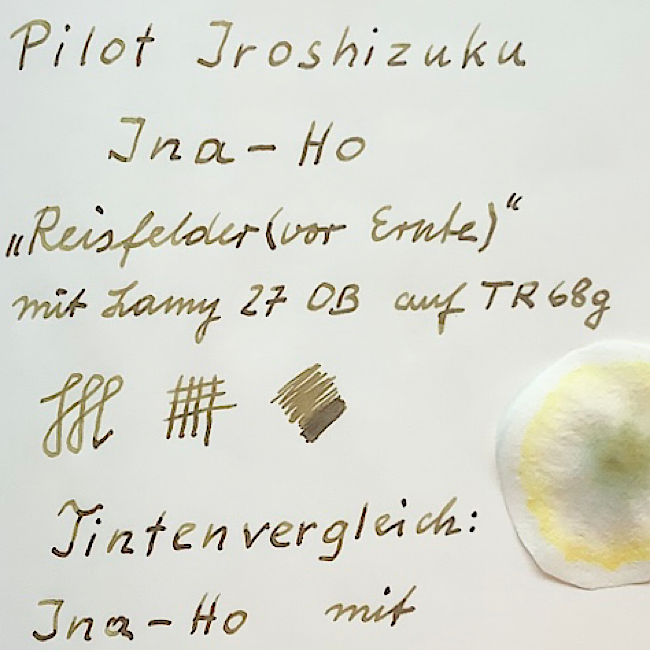 Pilot Iroshizuku
Ina-Ho
„Reisfelder (vor Ernte)“
mit Lamy 27 OB auf TR 68g
Tintenvergleich:
Ina-Ho mit